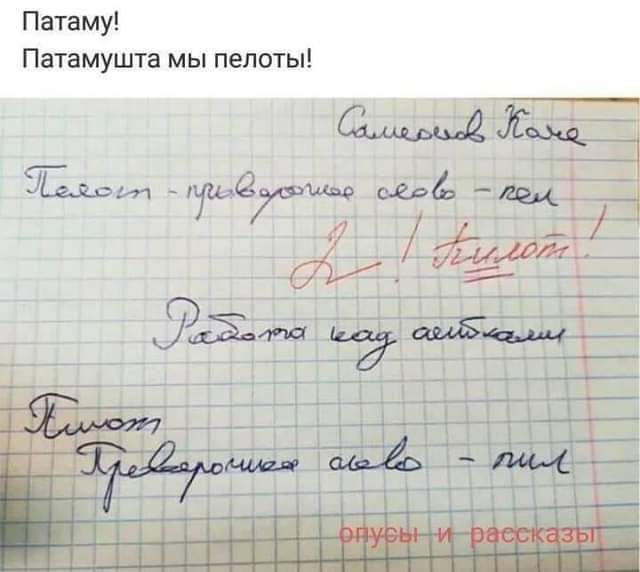 Патаму!
Патамушта мы пелоты!
Самсонов Коля
Пелот - приверочное слово - пел
2! Пилот!
Работа над ашибками
Пилот
Преверочное слово - пил
опусы и рассказы